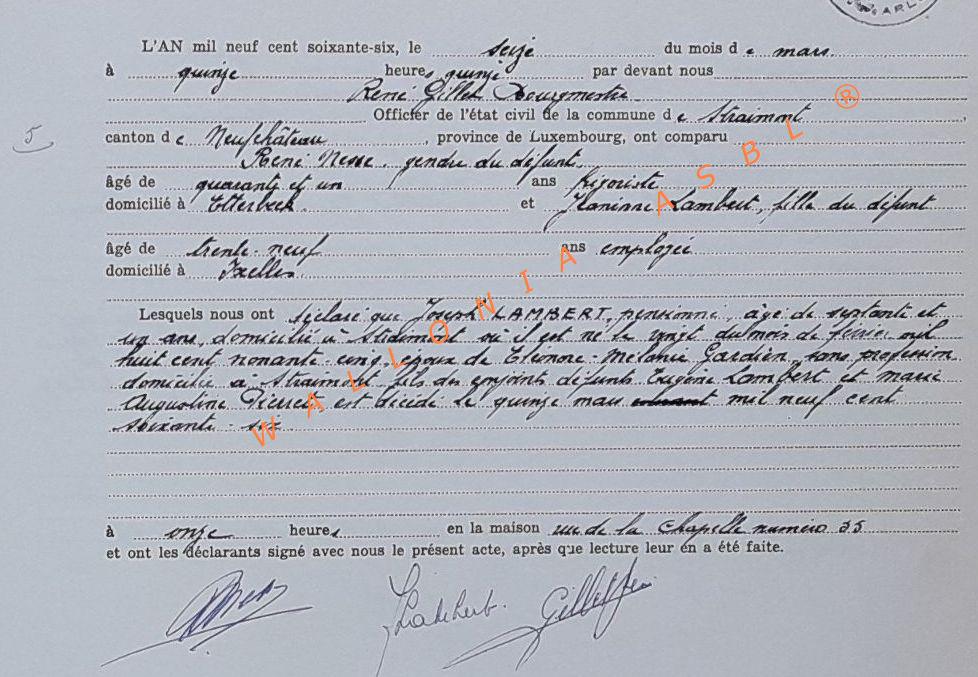 ARLO
L'AN mil neuf cent soixante-six, le seize du mois d e mars
à quinze heures quinze par devant nous
René Gillet Bourgmestre
Officier de l'état civil de la commune d e Straimont
5
canton d e Neufchâteau, province de Luxembourg, ont comparu
René gendre du défunt
âgé de quarante et un ans frigoriste
domicilié à Etterbeek et Jeaninne Lambert, fille du défunt
âgé de trente-neuf ans employée
domicilié à Ixelles
Lesquels nous ont déclaré que Joseph LAMBERT, pensionné, âgé de septante et
un ans, domicilié à Straimont où il est né le vingt du mois de février mil
huit cent nonante-cinq, époux de Eléonore-Mélanie Gardien, sans profession
domicilié à Straimont fils des conjoints défunts Eugène Lambert et Marie
Augustine Pierret est décédé le quinze mars courant mil neuf cent
soixante-six
à onze heures en la maison rue de la Chapelle numéro 35
et ont les déclarants signé avec nous le présent acte, après que lecture leur en a été faite.
WALLONIA ASBL ®